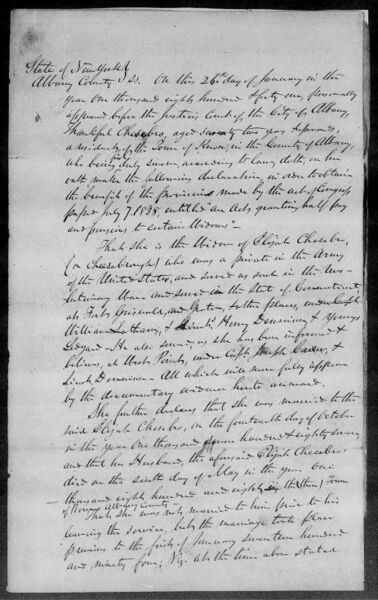 State of New York }
Albany County } SS. On this 26th day of January in the
year One thousand eight hundred & forty one, personally
appeared before the Justices Court of the City of Albany,
Thankful Chesebro, aged seventy two years & upwards,
a resident of the Town of Knox, in the County of Albany,
who being first duly sworn, according to law, doth, on her
oath make the following declaration, in order to obtain
the benefit of the provision made by the act of Congress
passed July 7, 1838, entitled "an Act granting half pay
and pensions to certain Widows"
That she is the Widow of Elijah Chesebro,
(or Cheesebrough) who was a private in the Army
of the United States, and served as such in the Revo-
lutionary War and served in the State of Connecticut,
at Forts Griswold, and Groton, & other places, under Capt
William Latham, & Lieuts Henry Dennison & Youngs
Ledyard. He also served, as she has been informed &
believes, at West Point, under Capt. Joseph &
Lieut Dennison - All which will more fully appear
by the documentary evidence hereto annexed.
She further declares that she was married to the
said Elijah Chesebro, on the fourteenth day of October
in the year One thousand seven hundred & eighty seven
and that her Husband, the aforesaid Elijah Chesebro,
died on the sixth day of May in the year One
thousand eight hundred and eight, in the (then) Town
of Berne, Albany County
That she was not married to him prior to his
leaving the service, but the marriage took place
previous to the first of January seventeen hundred
and ninety four; Viz. at the time above stated